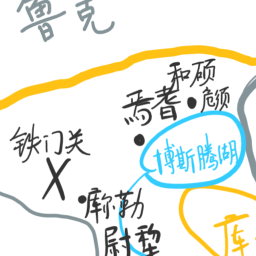 鲁克
和硕
焉耆
铁门关
博斯腾湖
库尔勒
尉犁
库